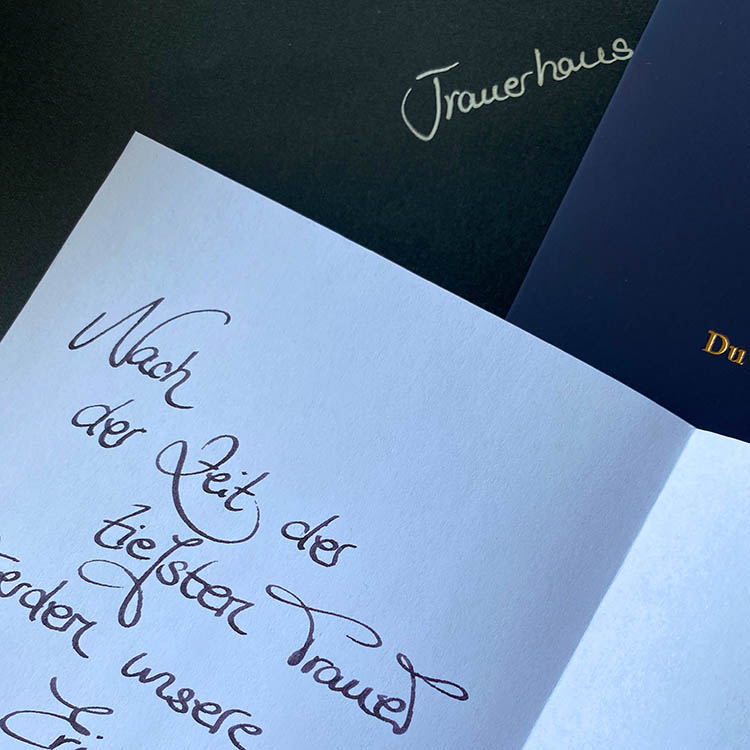 Trauerhaus
Du
Nach
der Zeit der
tiefsten Trauer
werden unsere